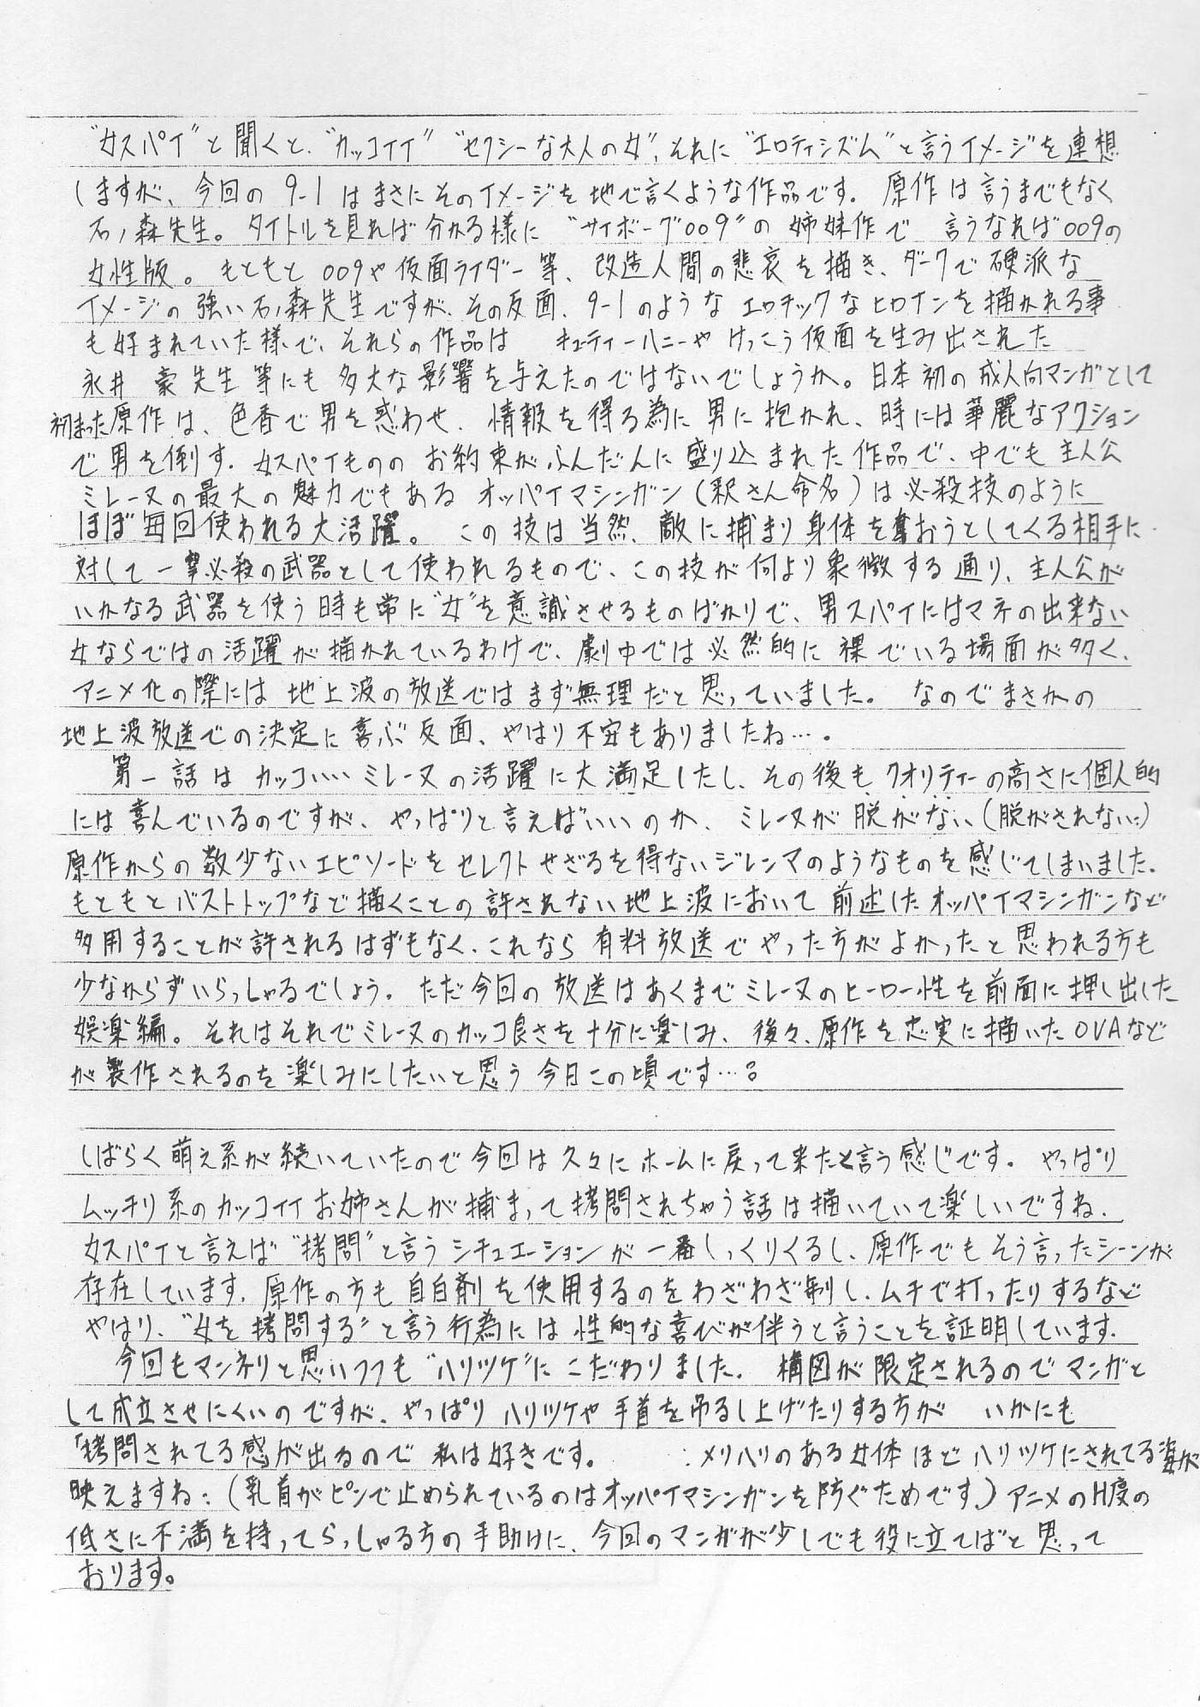 "女スパイ"と聞くと、"カッコイイ" "セクシーな大人の女"、それに"エロティシズム"と言うイメージを連想
しますが、今回の 9-1 はまさにそのイメージを地で言くような作品です。原作は言うまでもなく
石ノ森先生。タイトルを見れば分かる様に "サイボーグ009"の姉妹作で 言うなれば009の
女性版。もともと 009や仮面ライダー等、改造人間の悲哀を描き、ダークで硬派な
イメージの強い石ノ森先生ですが、その反面、9-1のような エロチックなヒロインを描かれる事
も好まれていた様で、それらの作品は キューティーハニーや けっこう仮面を生み出された
永井 豪先生等にも多大な影響を与えたのではないでしょうか。日本初の成人向マンガとして
初まった原作は、色香で男を惑わせ、情報を得る為に男に抱かれ、時には華麗なアクション
で男を倒す、女スパイものの お約束がふんだんに盛り込まれた作品で、中でも主人公
ミレーヌの最大の魅力でもある オッパイマシンガン(釈さん命名)は必殺技のように
ほぼ毎回使われる大活躍。この技は当然、敵に捕まり身体を奪おうとしてくる相手に
対して一撃必殺の武器として使われるもので、この技が何より象徴する通り、主人公が
いかなる武器を使う時も常に"女"を意識させるものばかりで、男スパイにはマネの出来ない
女ならではの活躍が描かれているわけで、劇中では必然的に裸でいる場面が多く、
アニメ化の際には地上波の放送ではまず無理だと思っていました。なのでまさかの
地上波放送での決定に喜ぶ反面、やはり不安もありましたね…。
第一話はカッコいい ミレーヌの活躍に大満足したし、その後もクオリティーの高さに個人的
には喜んでいるのですが、やっぱりと言えばいいのか、ミレーヌが脱がない(脱がされない;)
原作からの数少ないエピソードをセレクトせざるを得ないジレンマのようなものを感じてしまいました。
もともとバストトップなど描くことの許されない地上波において前述したオッパイマシンガンなど
多用することが許されるはずもなく、これなら有料放送でやった方がよかったと思われる方も
少なからずいらっしゃるでしょう。ただ今回の放送はあくまでミレーヌのヒーロー性を前面に押し出した
娯楽編。それはそれでミレーヌのカッコ良さを十分に楽しみ、後々、原作を忠実に描いたOVAなど
が製作されるのを楽しみにしたいと思う今日この頃です…。
しばらく萌え系が続いていたので今回は久々にホームに戻って来たと言う感じです。やっぱり
ムッチリ系のカッコイイお姉さんが捕まって拷問されちゃう話は描いていて楽しいですね。
女スパイと言えば"拷問"と言うシチュエーションが一番しっくりくるし、原作でもそう言ったシーンが
存在しています。原作の方も自白剤を使用するのをわざわざ制し、ムチで打ったりするなど
やはり、"女を拷問する"と言う行為には性的な喜びが伴うと言うことを証明しています。
今回もマンネリと思いつつも"ハリツケ"にこだわりました。構図が限定されるのでマンガと
して成立させにくいのですが、やっぱりハリツケや手首を吊るし上げたりする方が いかにも
「拷問されてる感が出るので私は好きです。 メリハリのある女体ほどハリツケにされてる姿が
映えますね;(乳首がピンで止められているのはオッパイマシンガンを防ぐためです)アニメのH度の
低さに不満を持ってらっしゃる方の手助けに、今回のマンガが少しでも役に立てばと思って
おります。